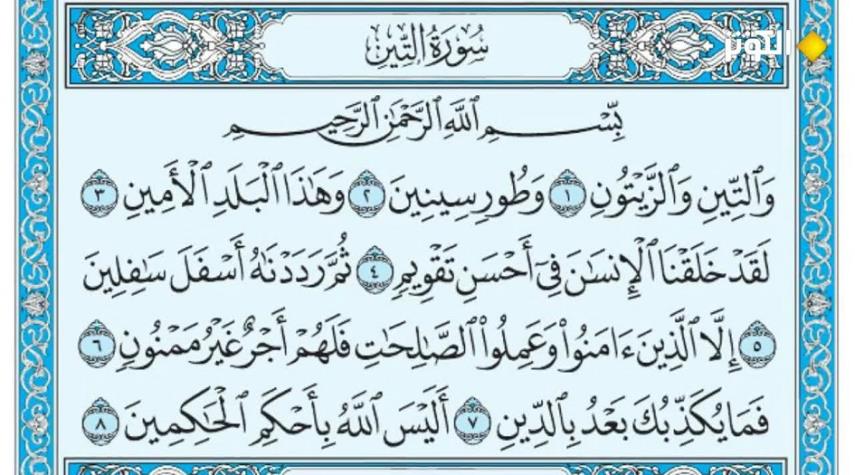 سُورَةُ التِّينِ
الكوثر
بِّسْمِ ٱللَّهِ ٱلرَّحْمَٰنِ ٱلرَّحِيمِ
وَٱلتِّينِ وَٱلزَّيْتُونِ ١ وَطُورِ سِينِينَ ٢ وَهَٰذَا ٱلْبَلَدِ ٱلْأَمِينِ ٣
لَقَدْ خَلَقْنَا ٱلْإِنسَٰنَ فِىٓ أَحْسَنِ تَقْوِيمٍ ٤ ثُمَّ رَدَدْنَٰهُ أَسْفَلَ سَٰفِلِينَ
٥ إِلَّا ٱلَّذِينَ ءَامَنُوا۟ وَعَمِلُوا۟ ٱلصَّٰلِحَٰتِ فَلَهُمْ أَجْرٌ غَيْرُ مَمْنُونٍ ٦
فَمَا يُكَذِّبُكَ بَعْدُ بِٱلدِّينِ ٧ أَلَيْسَ ٱللَّهُ بِأَحْكَمِ ٱلْحَٰكِمِينَ ٨